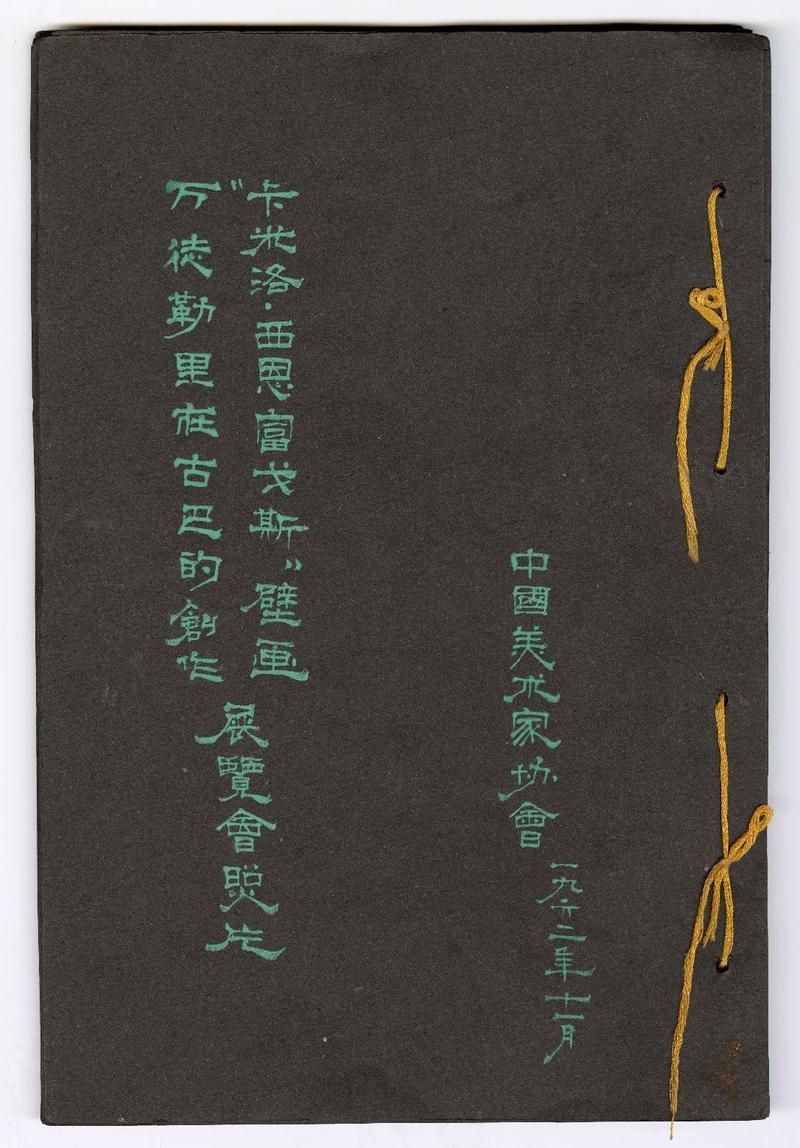 中國美术家协會
一九六二年十一月
“卡米洛·西恩富戈斯”壁画
万徒勒里在古巴的創作
展覽會照片